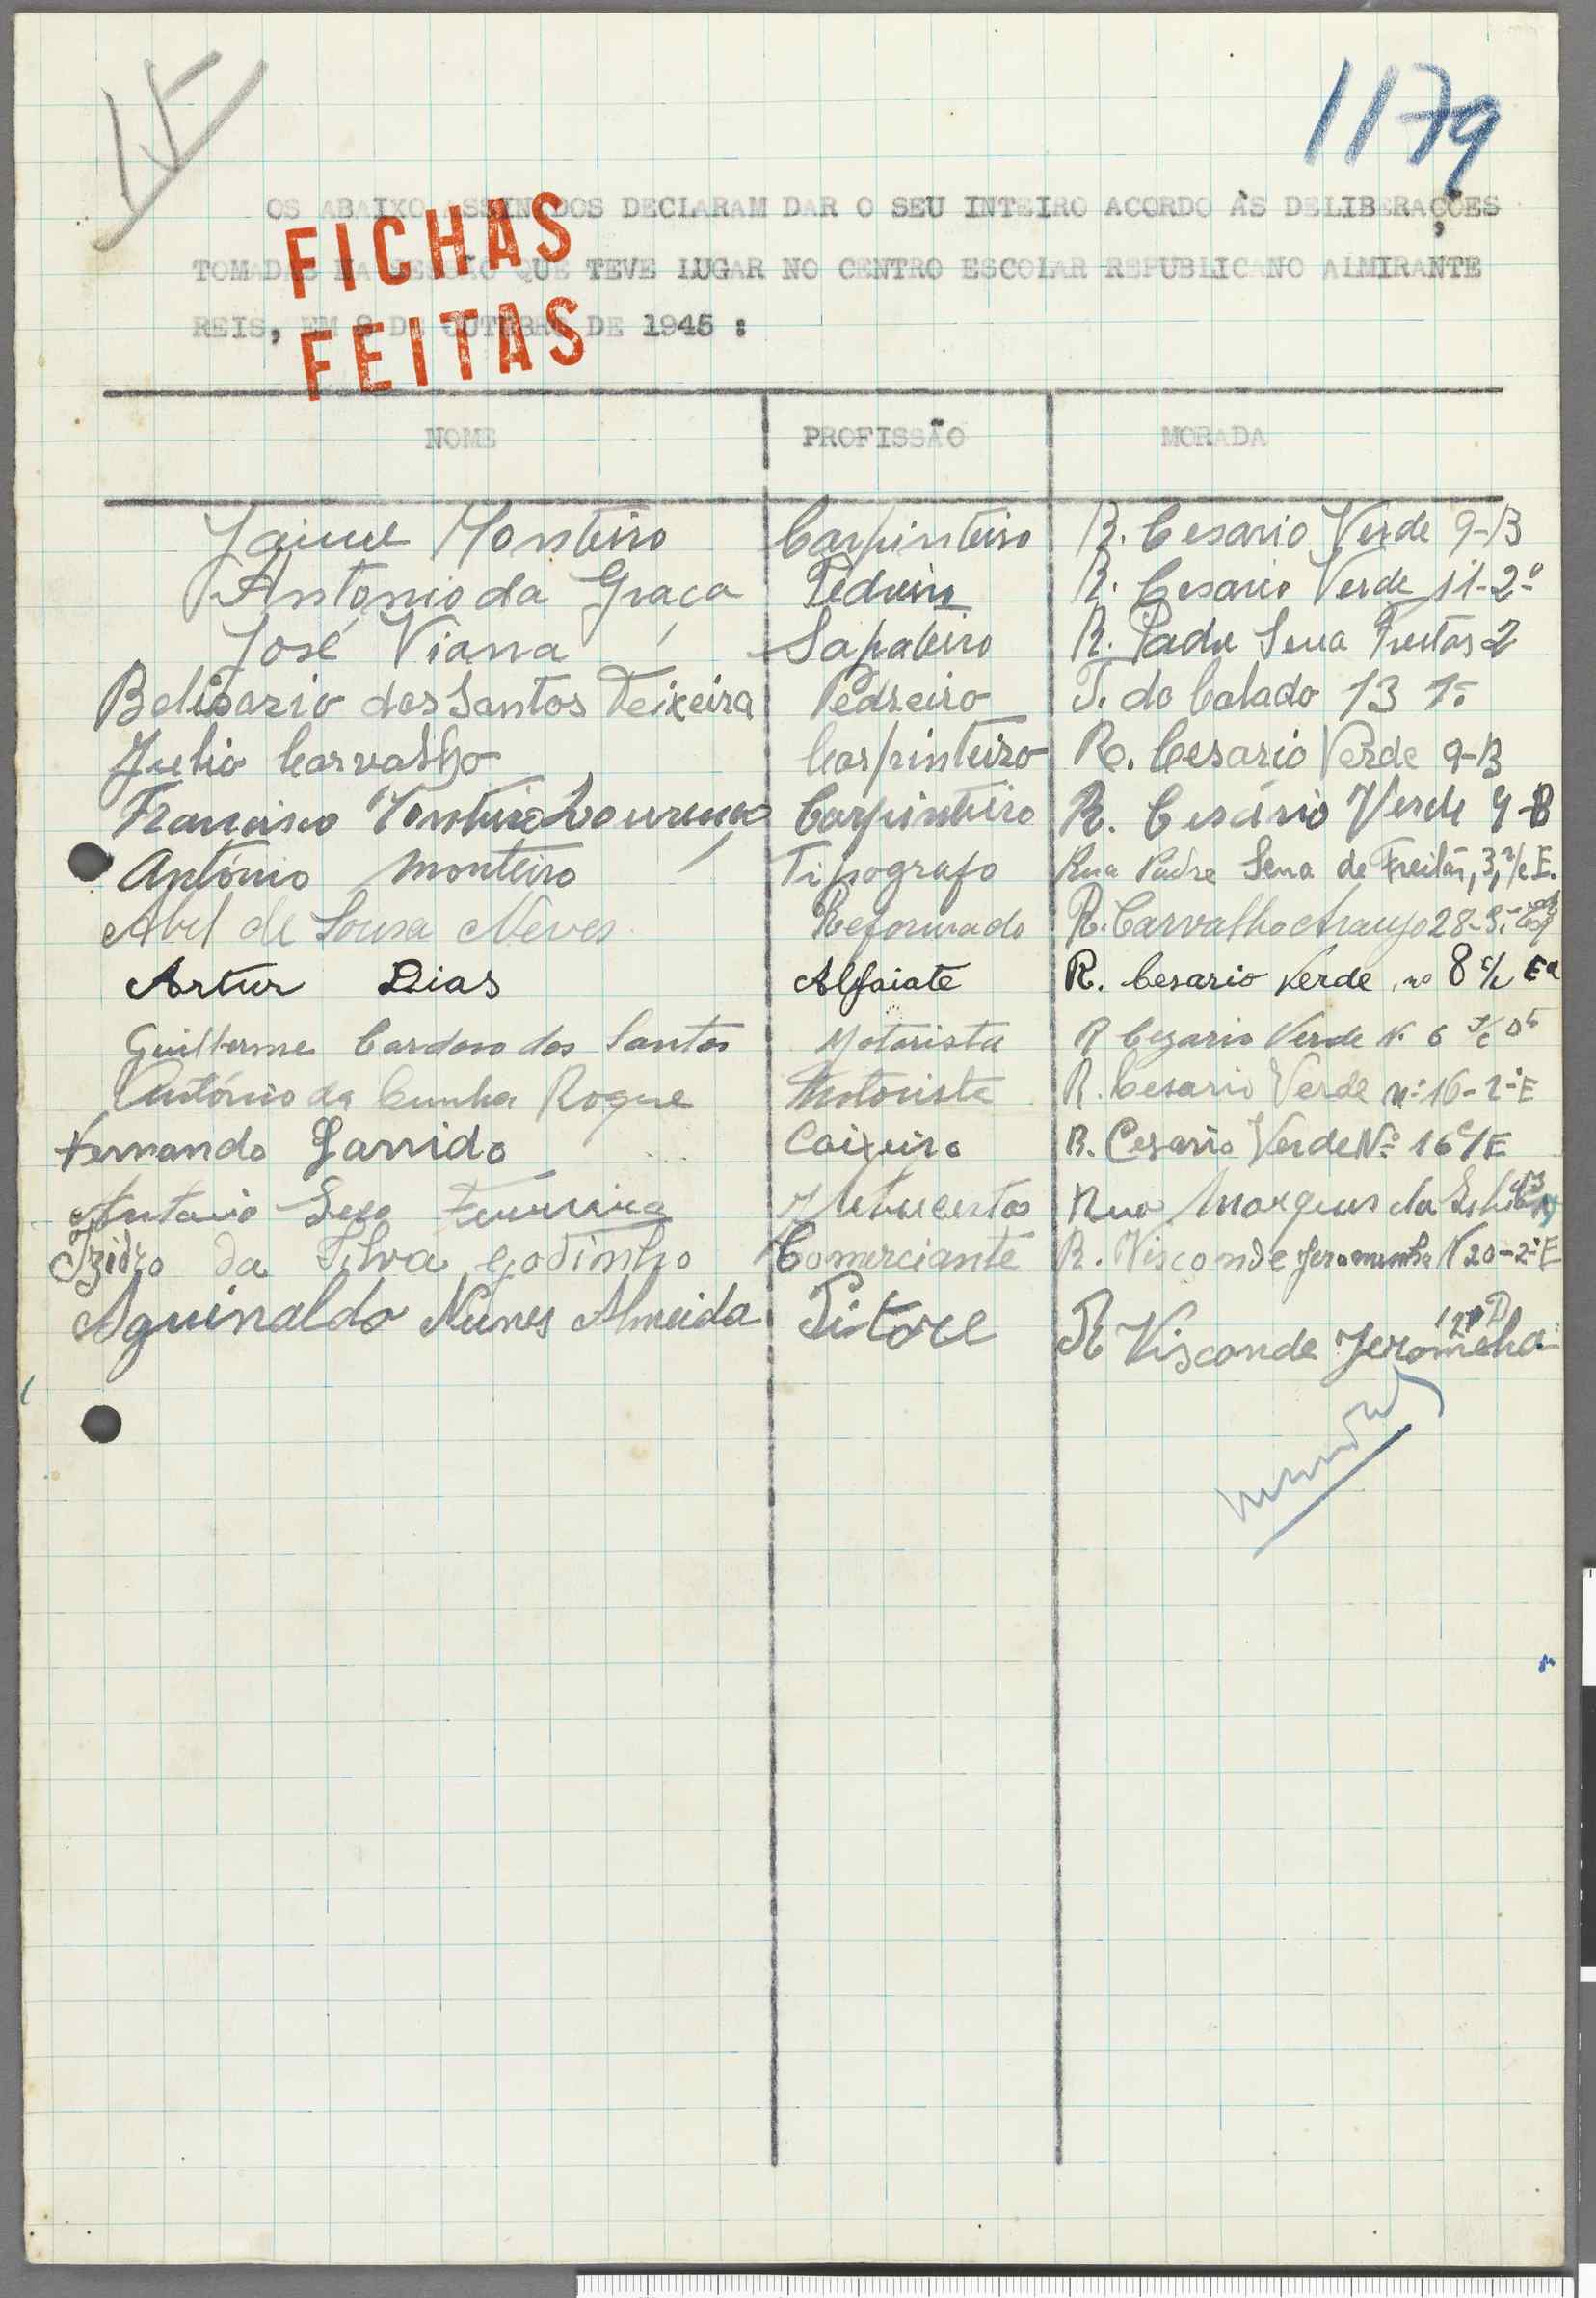 1179
OS ABAIXO ASSINADOS DECLARAM DAR O SEU INTEIRO ACORDO ÀS DELIBERAÇÕES
TOMADAS NA SESSÃO QUE TEVE LUGAR NO CENTRO ESCOLAR REPUBLICANO ALMIRANTE
REIS, EM 8 DE OUTUBRO DE 1945 :
FICHAS
FEITAS
NOME PROFISSÃO MORADA
Jaime Monteiro Carpinteiro R. Cesario Verde 9-B
Antonio da Graça Pedreiro R. Cesario Verde 11-2º
José Viana Sapateiro R. Padre Sena Freitas 2
Belisario dos Santos Teixeira Pedreiro T. do Calado 13 1º
Julio Carvalho Carpinteiro R. Cesario Verde 9-B
Francisco Monteiro Lourenço Carpinteiro R. Cesário Verde 9-B
António Monteiro Tipografo Rua Padre Sena de Freitas, 3, r/c E.
Abel de Sousa Neves Reformado R. Carvalho Araujo 28-3.º
Artur Dias Alfaiate R. Cesario Verde, no 8 c/v Ed
Guilherme Cardoso dos Santos Motorista R Cezario Verde N. 6 r/c Dt
António da Cunha Roque Motorista R. Cesario Verde nº 16-2º E
Fernando Garrido Caixeiro R. Cesario Verde Nº 16 c/E
Antonio Ferreira Rua Marques da
Izidro da Silva Godinho Comerciante R. Visconde Jeromenha N 20-2º E
Aguinaldo Nunes Almeida Pitore R Visconde Jeromeha